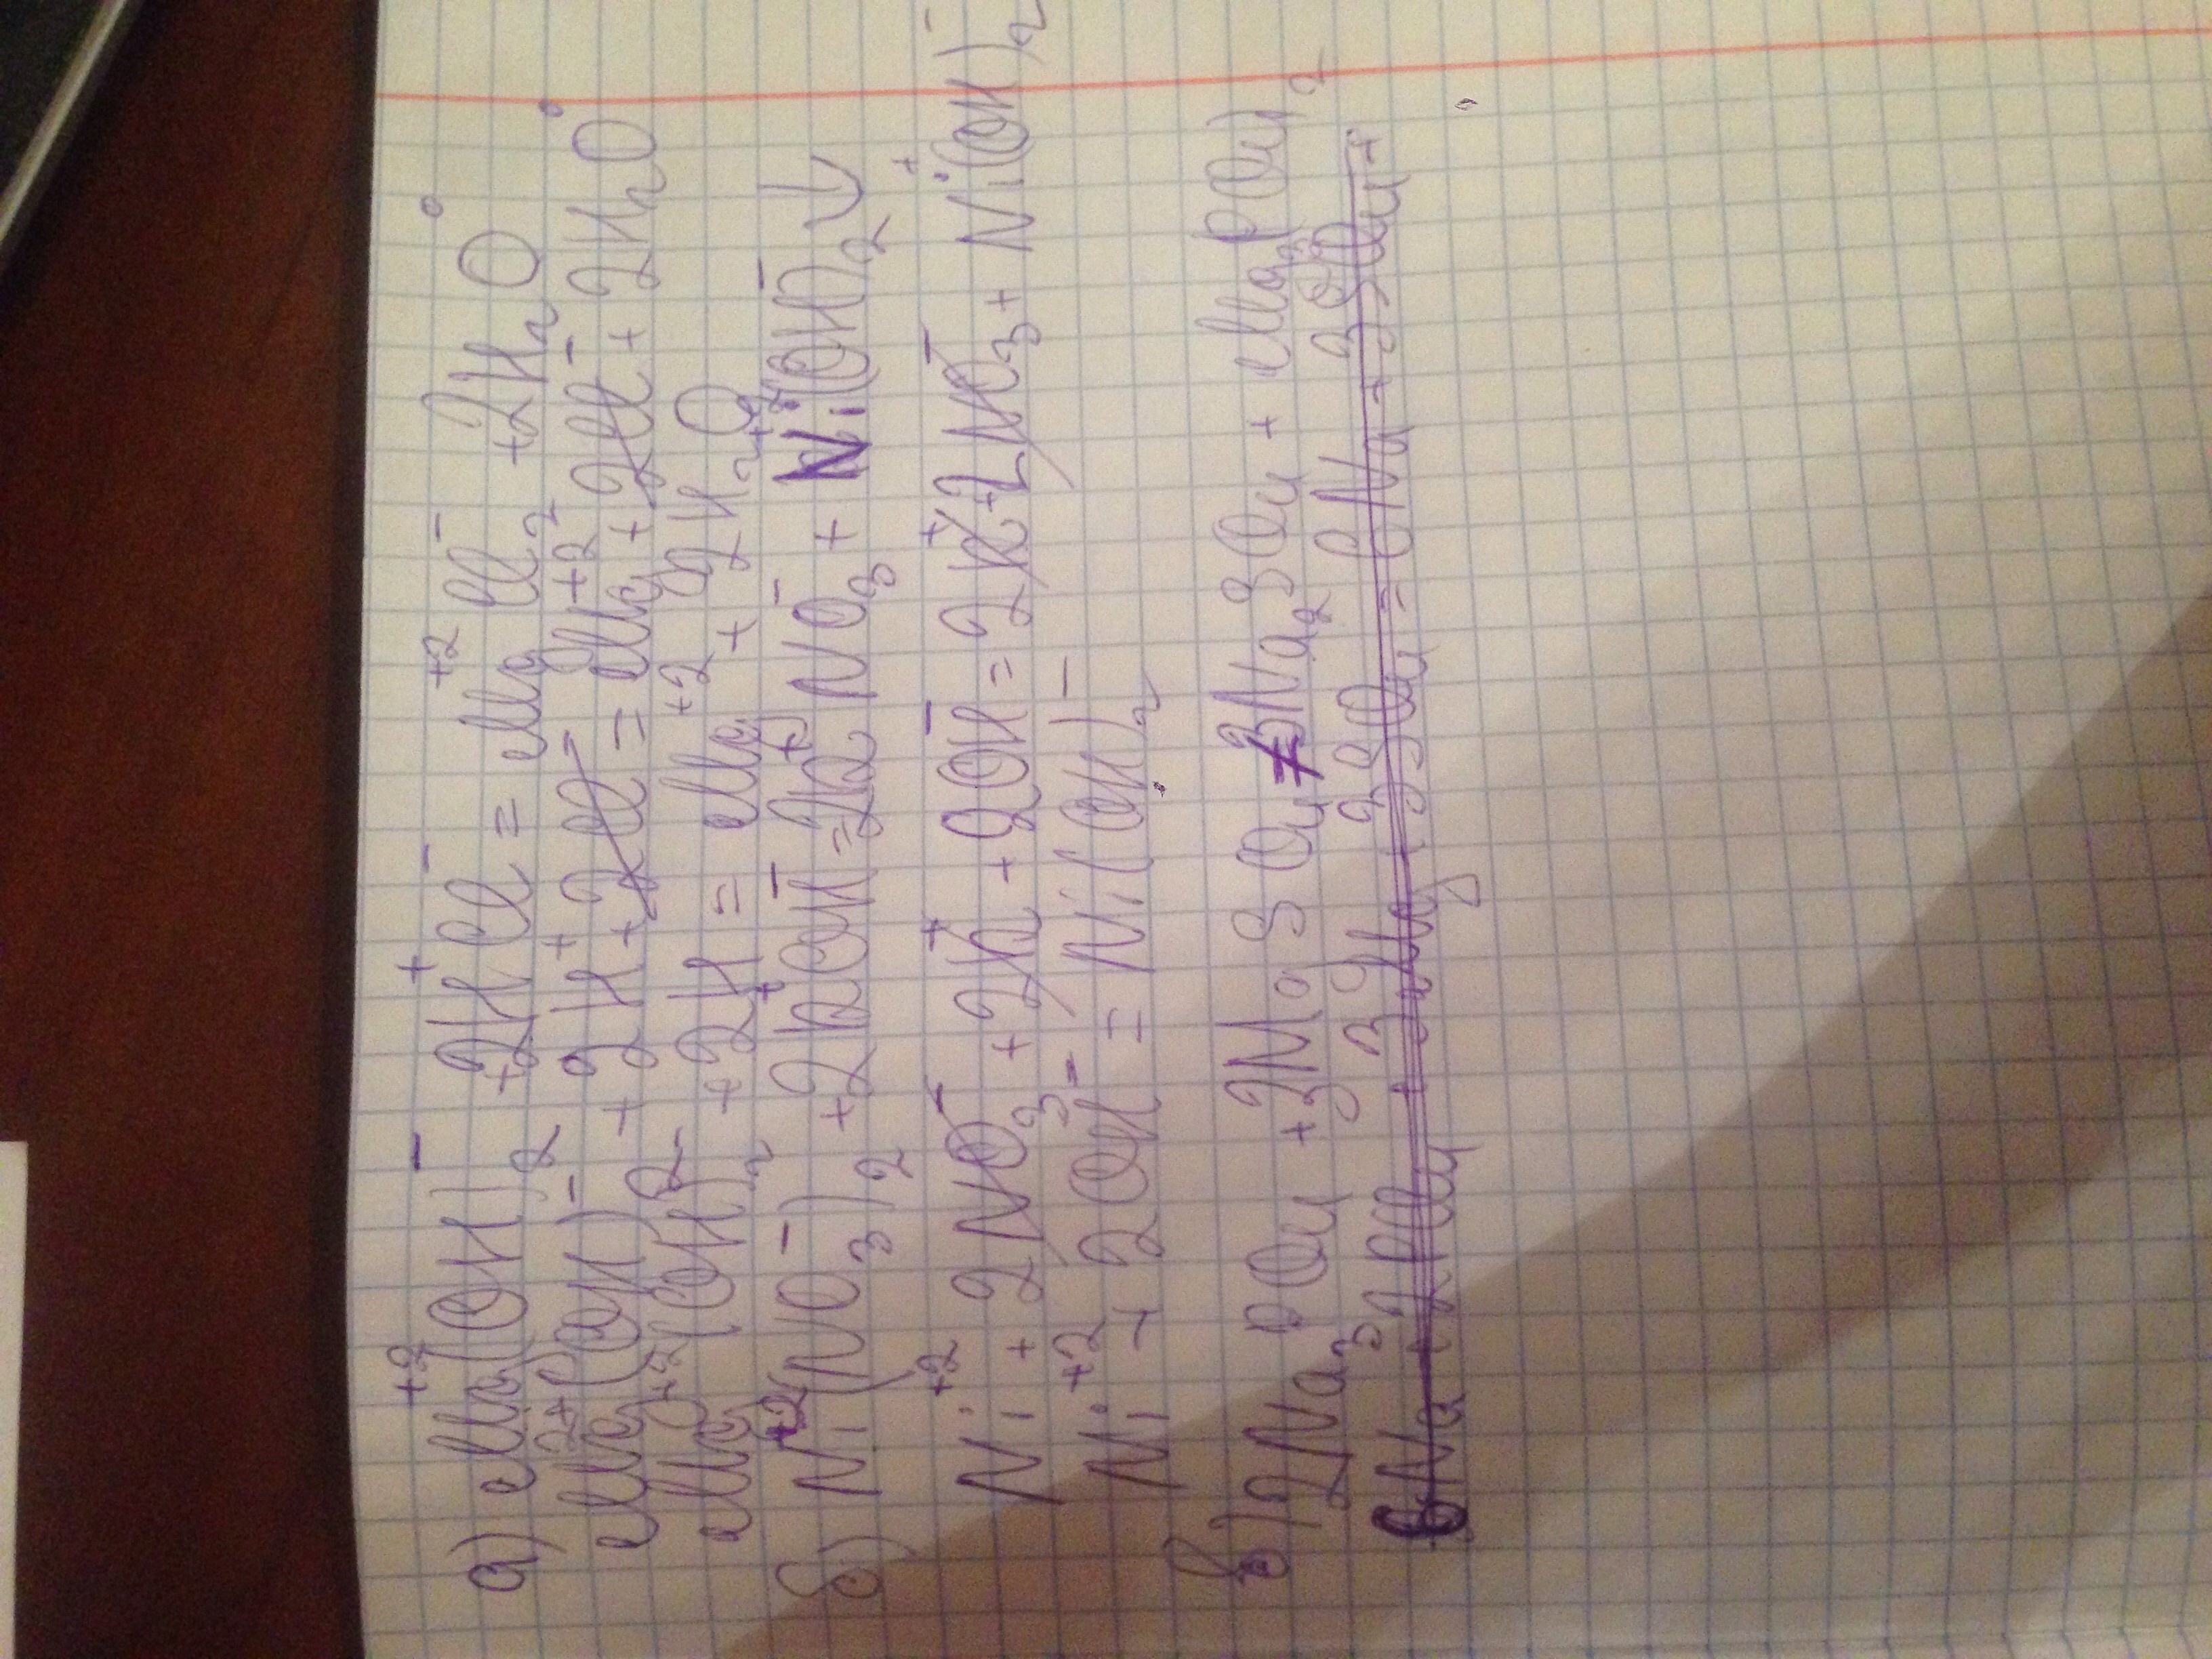 а) Mg(OH)₂ + 2HCl = MgCl₂ + 2H₂O
Mg(OH)₂ + 2H + 2Cl = Mg + 2Cl + 2H₂O
Mg(OH)₂ + 2H = Mg + 2H₂O
б) Ni(NO₃)₂ + 2KOH = 2KNO₃ + Ni(OH)₂↓
Ni + 2NO₃ + 2K + 2OH = 2K + 2NO₃ + Ni(OH)₂
Ni + 2OH = Ni(OH)₂
в) 2Na₃PO₄ + 3MgSO₄ ≠ 3Na₂SO₄ + Mg₃(PO₄)₂